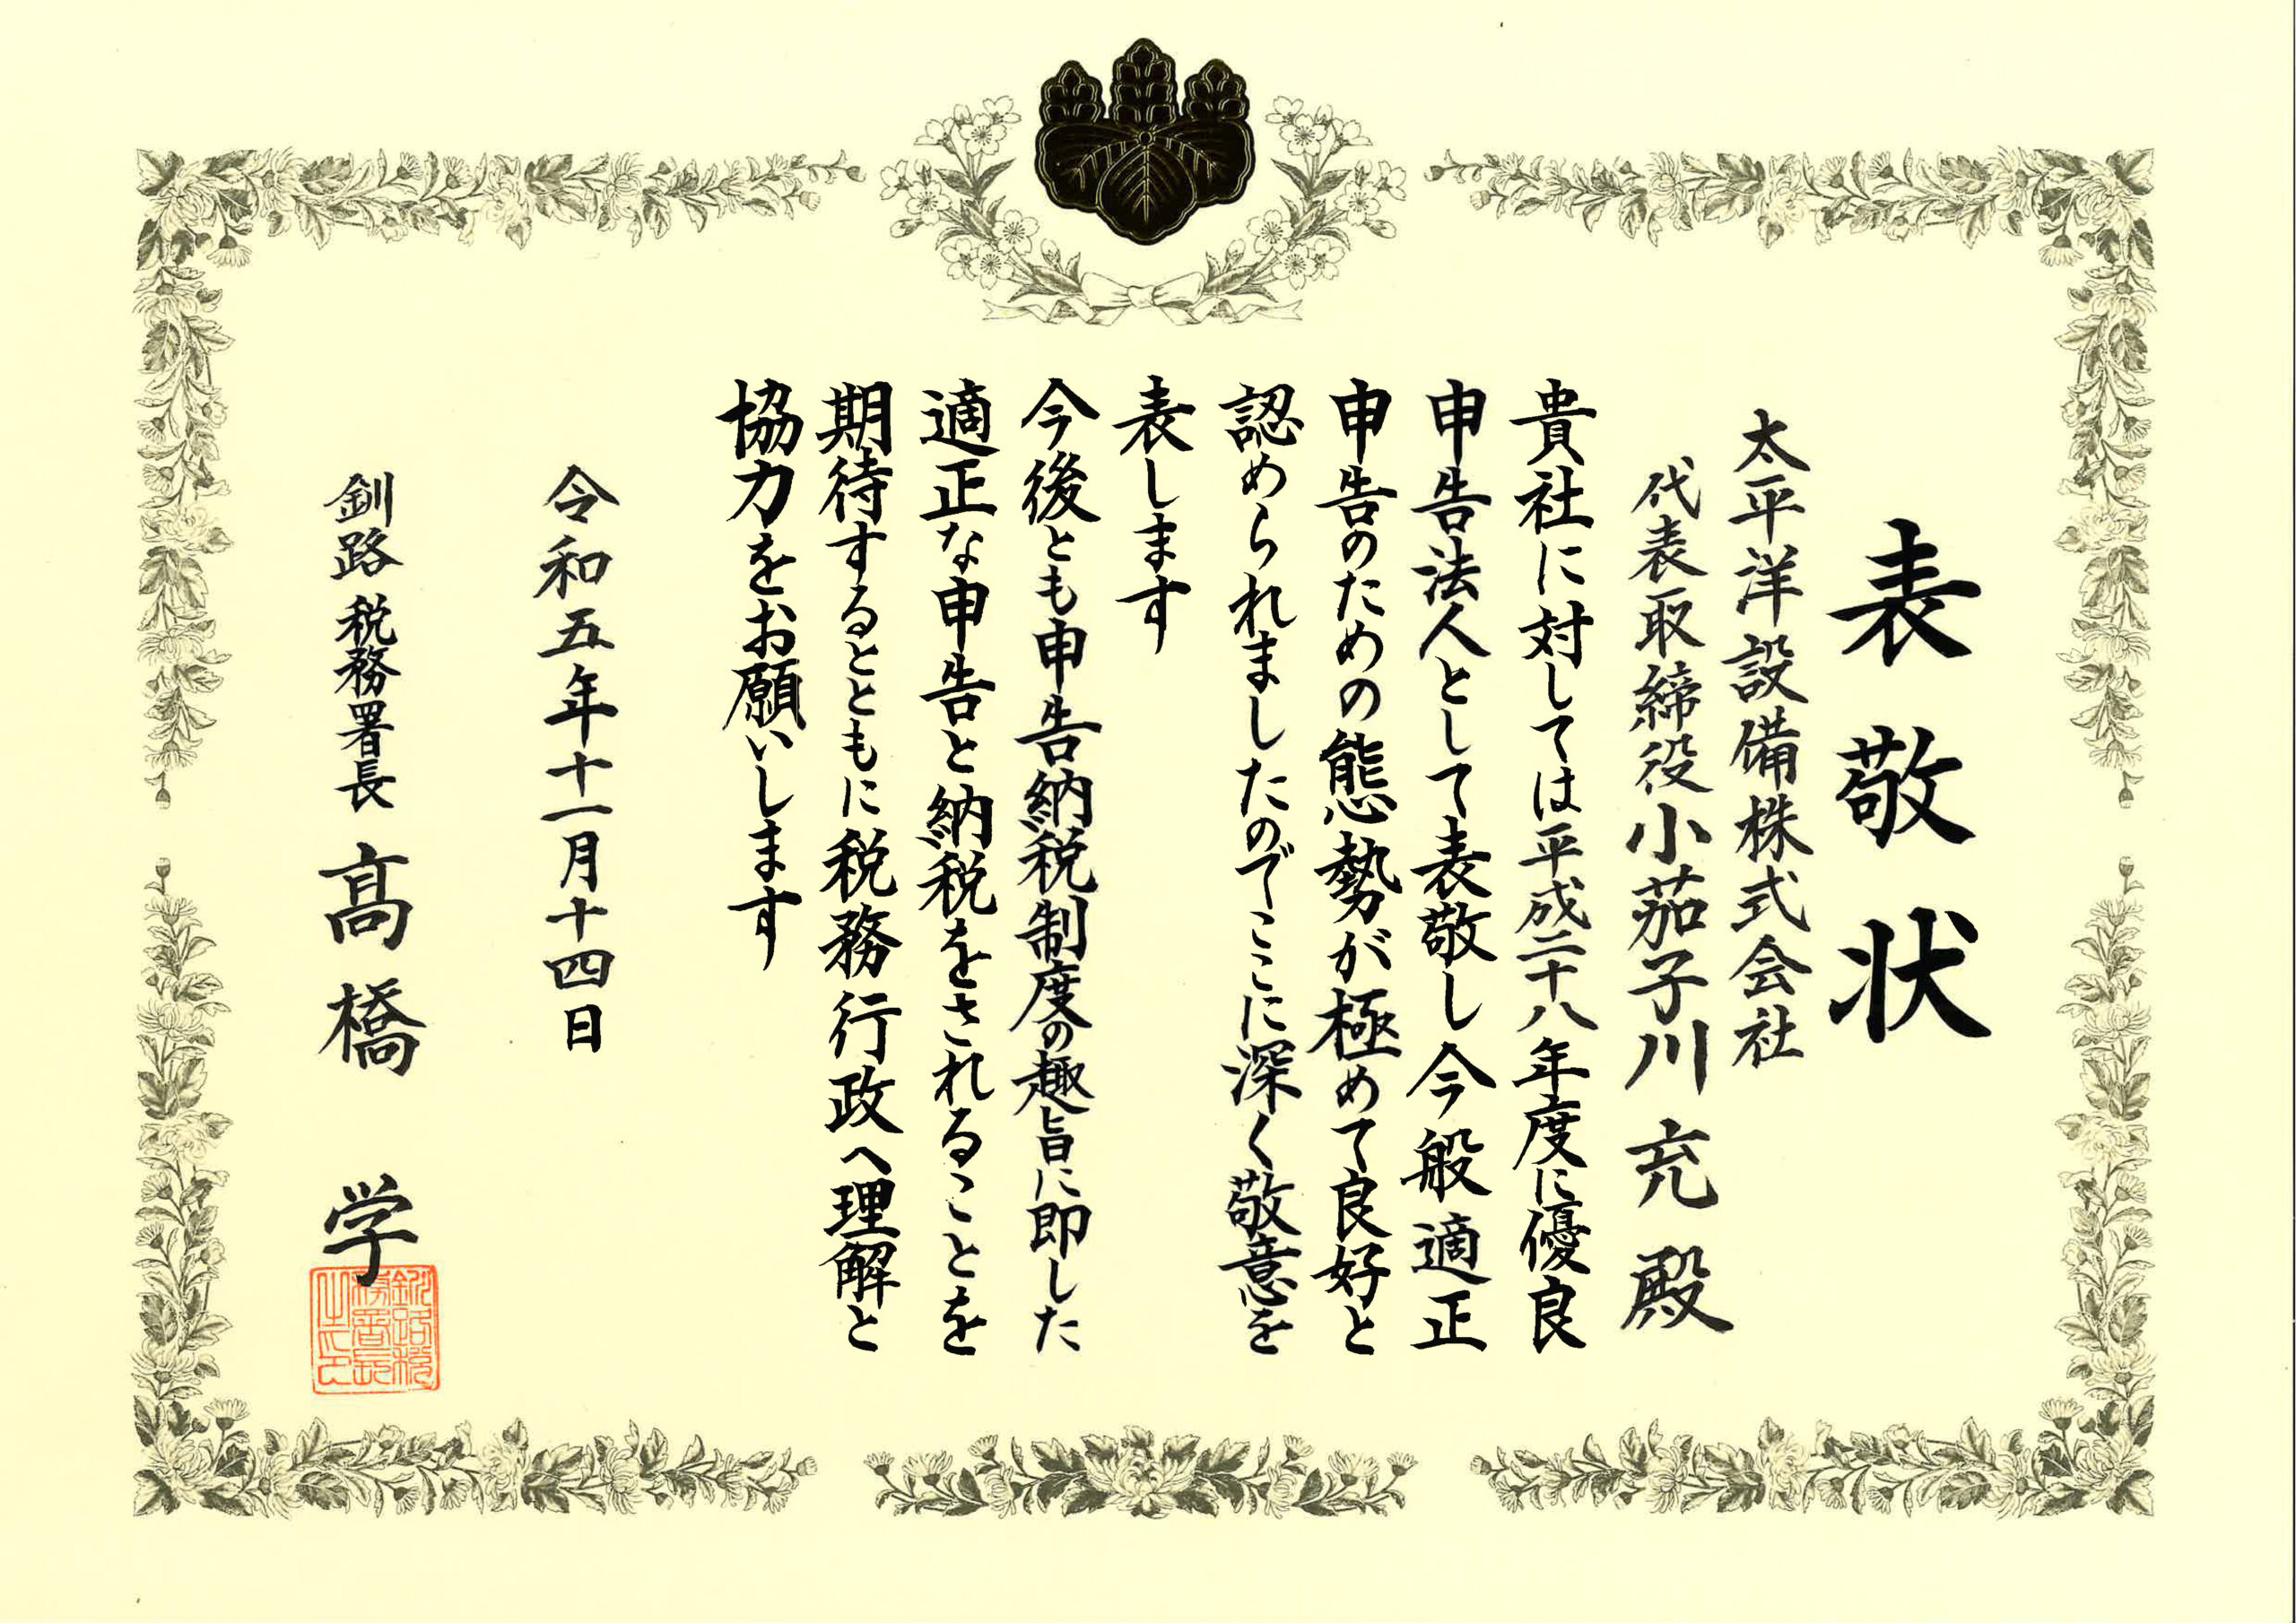 表敬状
太平洋設備株式会社
代表取締役小茄子川充殿
貴社に対しては平成二十八年度に優良
申告法人として表敬し今般適正
申告のための態勢が極めて良好と
認められましたのでここに深く敬意を
表します
今後とも申告納税制度の趣旨に即した
適正な申告と納税をされることを
期待するとともに税務行政へ理解と
協力をお願いします
令和五年十一月十四日
釧路税務署長髙橋学
釧路税
務署長
之印